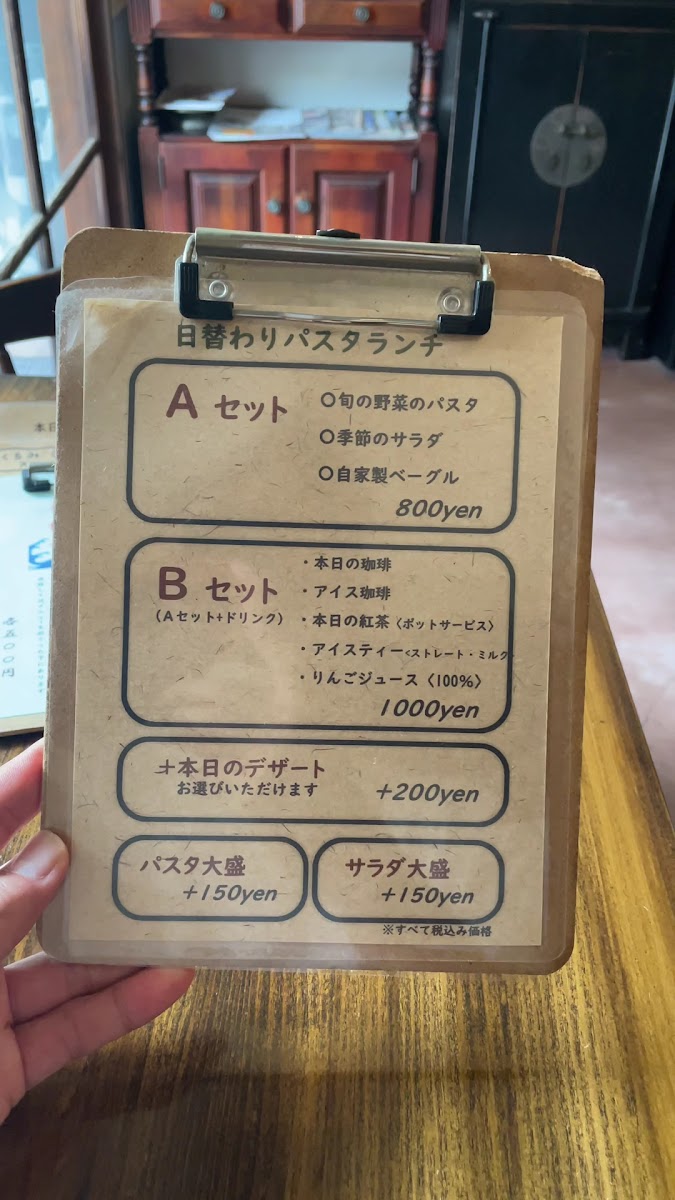 日替わりパスタランチ
A セット
〇旬の野菜のパスタ
〇季節のサラダ
〇自家製ベーグル
800yen
B セット
(Aセット+ドリンク)
・本日の珈琲
・アイス珈琲
・本日の紅茶〈ポットサービス〉
・アイスティー<ストレート・ミルク>
・りんごジュース〈100%〉
1000yen
+本日のデザート
お選びいただけます
+200yen
パスタ大盛
+150yen
サラダ大盛
+150yen
※すべて税込み価格
本日